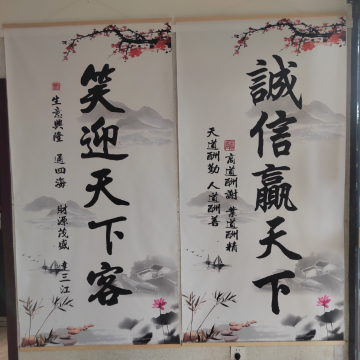 誠信贏天下
商道酬謝 業道酬精
天道酬勤 人道酬善
笑迎天下客
生意興隆 通四海 財源茂盛 達三江